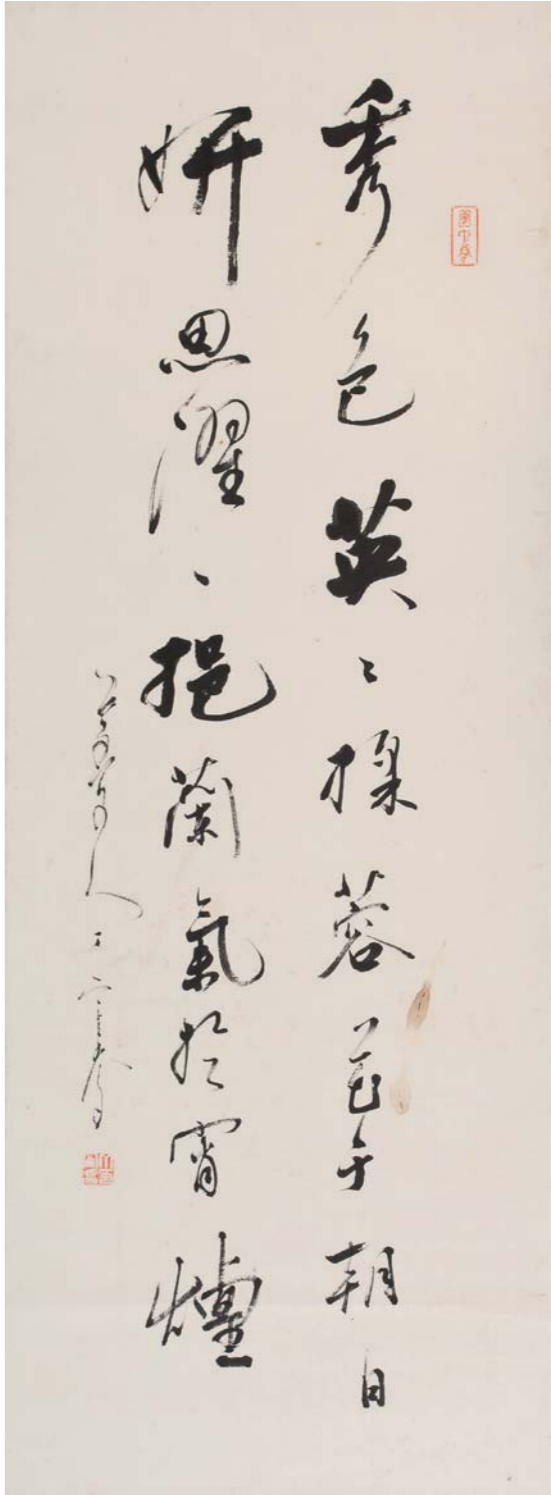 秀色英〻蓉花于朝日
妍思濯〻挹蘭氣於宵爐